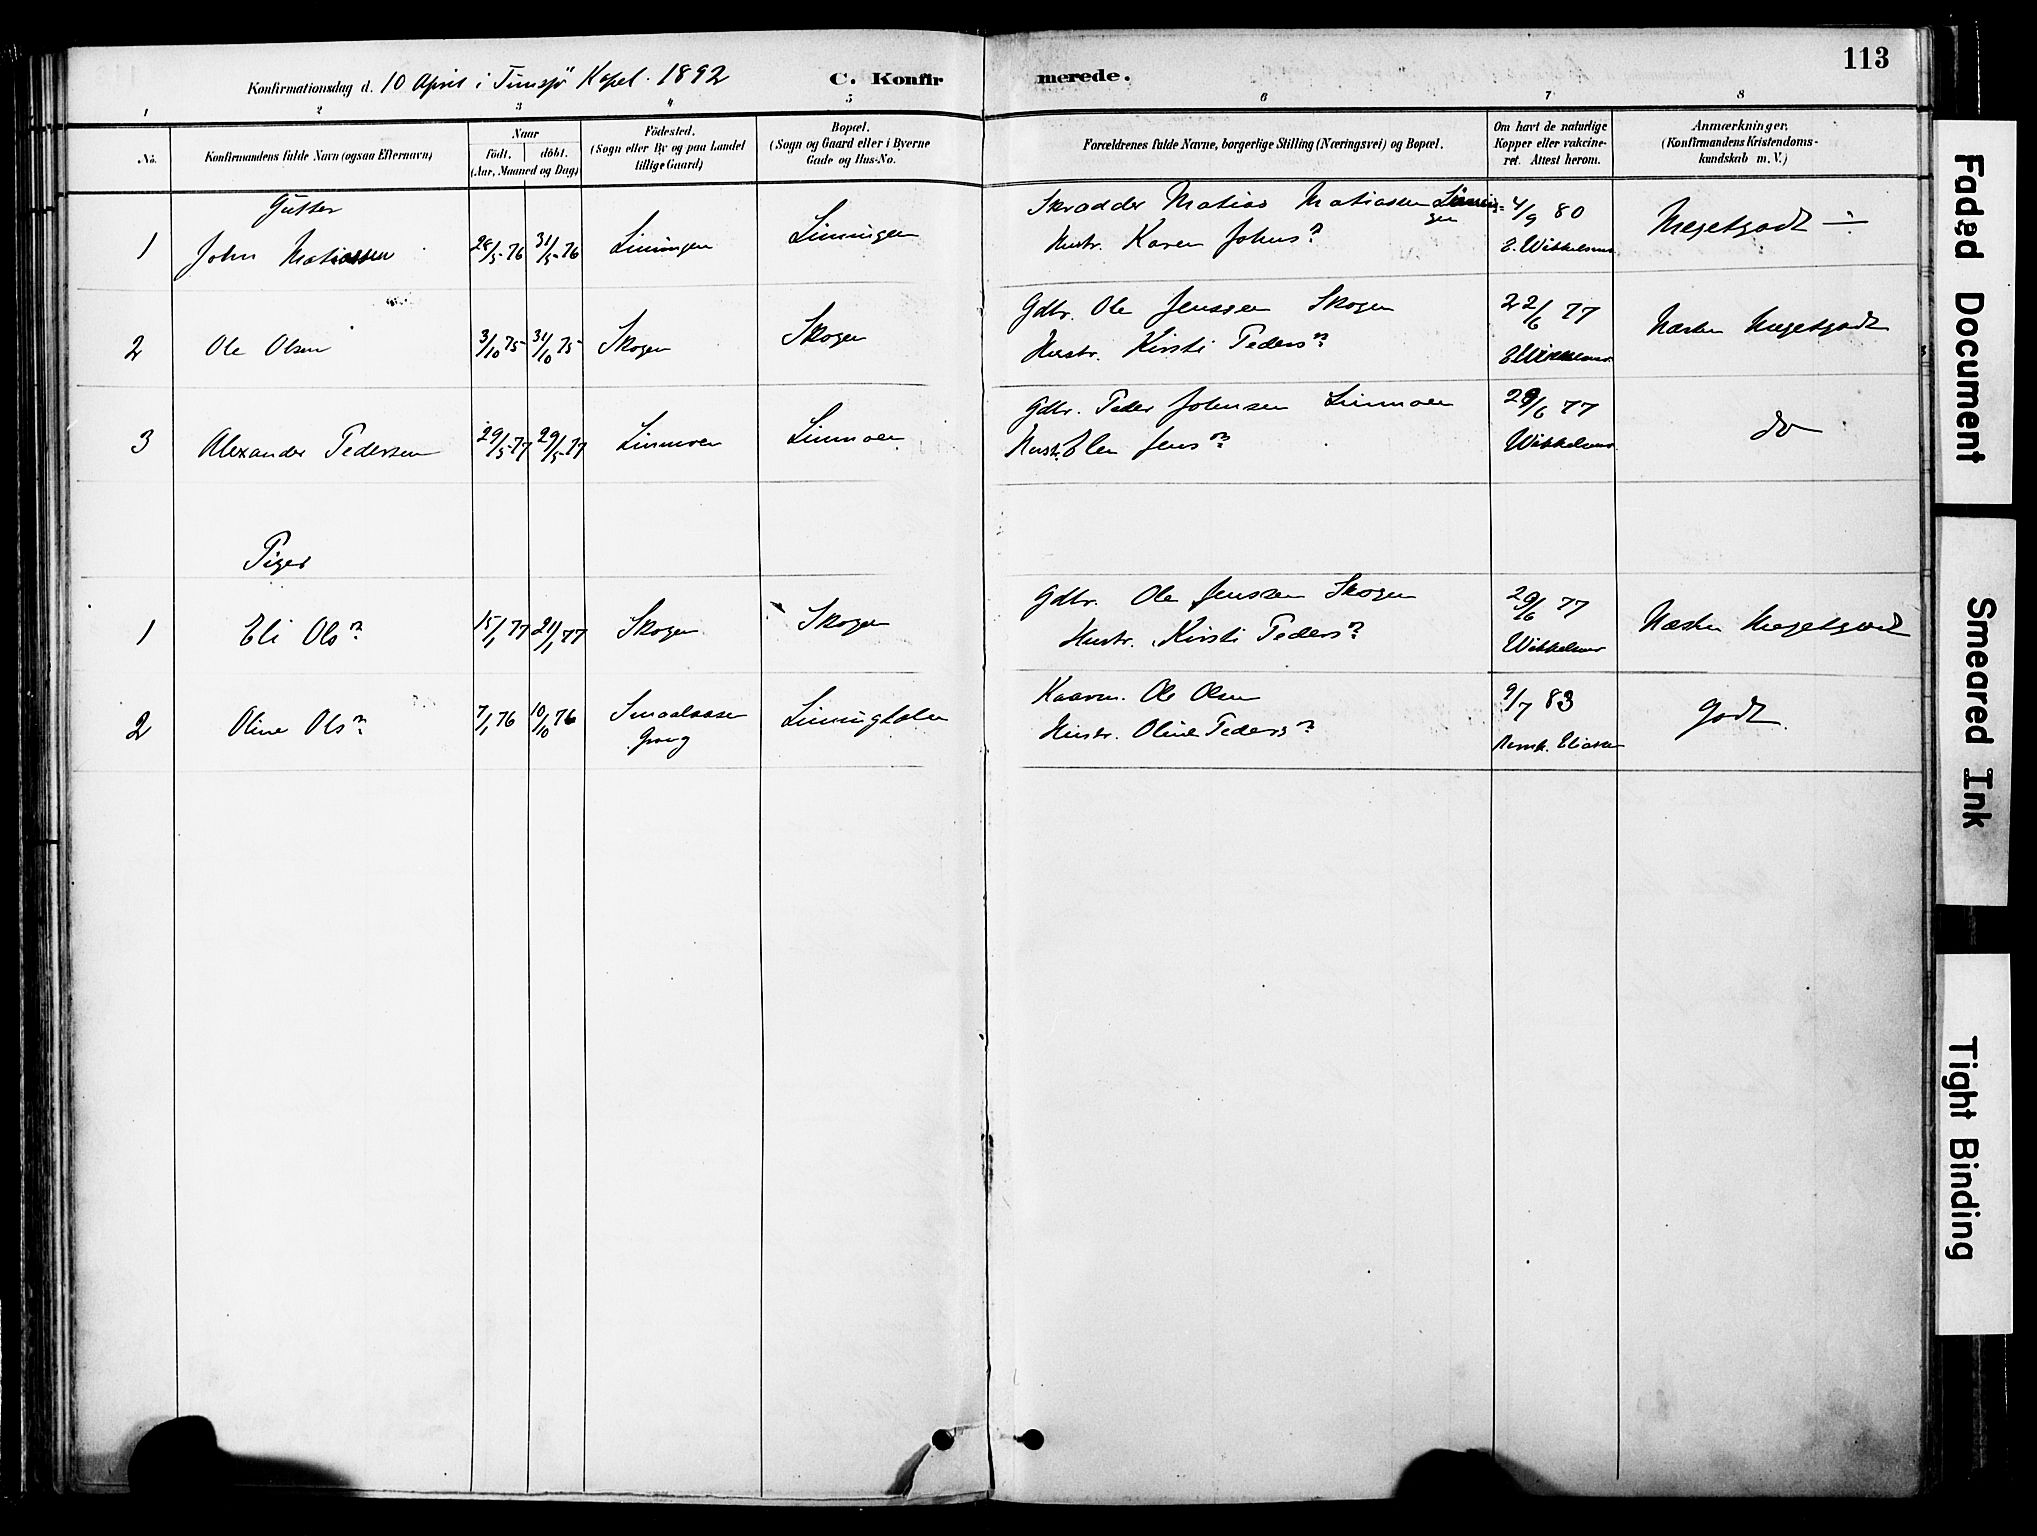 113
Konfirmationsdag d. 10 April i Tunsjö Kapel. 1892 C. Konfirmerede.
1 2 3 4 5 6 7 8
No. Konfirmandens fulde Navn (ogsaa Efternavn) Naar födt. döbt. (Aar, Maaned og Dag) Födested. (Sogn eller By og paa Landet tillige Gaard) Bopæl. (Sogn og Gaard eller i Byerne Gade og Hus-No. Forældrenes fulde Navne, borgerlige Stilling (Næringsvei) og Bopæl. Om havt de naturlige Kopper eller vakcineret. Attest herom. Anmærkninger. (Konfirmandens Kristendomskundskab m. V.)
Gutter
1 John Matiassen 28/5-76 31/5-76 Limingen Limingen Skrædder Matias Matiassen Limingen 4/9 80 Megetgodt ÷
Hustr. Karen Johnsn E. Wibbelsmo
2 Ole Olsen 3/10 75 31/10 75 Skogen Skogen Gdbr. Ole Jenssen Skogen 22/6 77 Næsten Megetgodt
Hustr. Kirsti Pedersn
3 Alexander Pedersen 29/5-77 29/5-77 Linmoen Linmoen Gdbr. Peder Johnsen Linmoen 29/6 77 do
Hustr. Elen Jensn
Piger
1 Eli Olsn 15/1 77 21/1 77 Skogen Skogen Gdbr. Ole Jenssen Skogen 29/6 77 Næsten Megetgodt
Hustr. Kirsti Pedersn
2 Oline Olsn 7/1 76 10/10 76 Smaalaasen Grong Ole Olsen 9/7 83 Godt.
Hustr. Oline Pedersn
Faded Document
Smeared Ink
Tight Binding